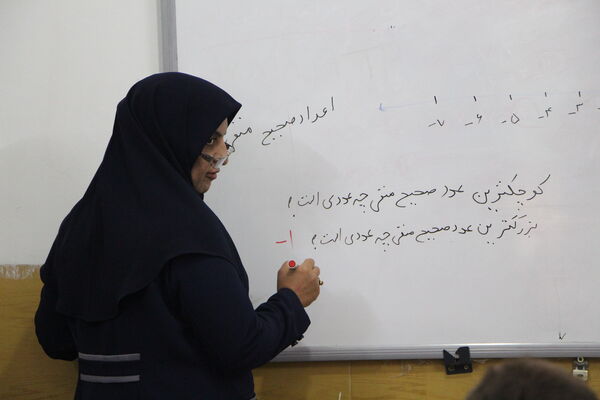 اعداد صحیح منفی
-۷ -۶ -۵ -۴ -۳
کوچکترین عدد صحیح منفی چه عددی است؟
بزرگترین عدد صحیح منفی چه عددی است؟ -۱